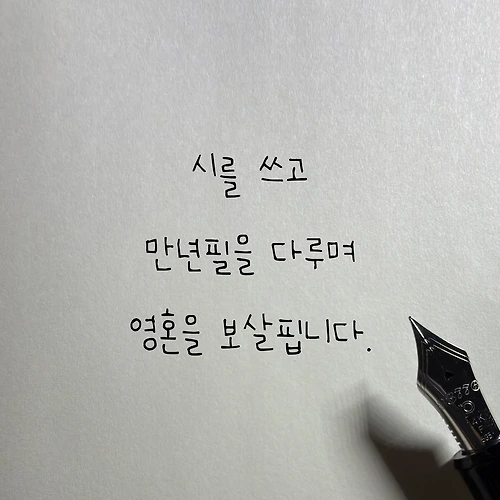 시를 쓰고
만년필을 다루며
영혼을 보살핍니다.